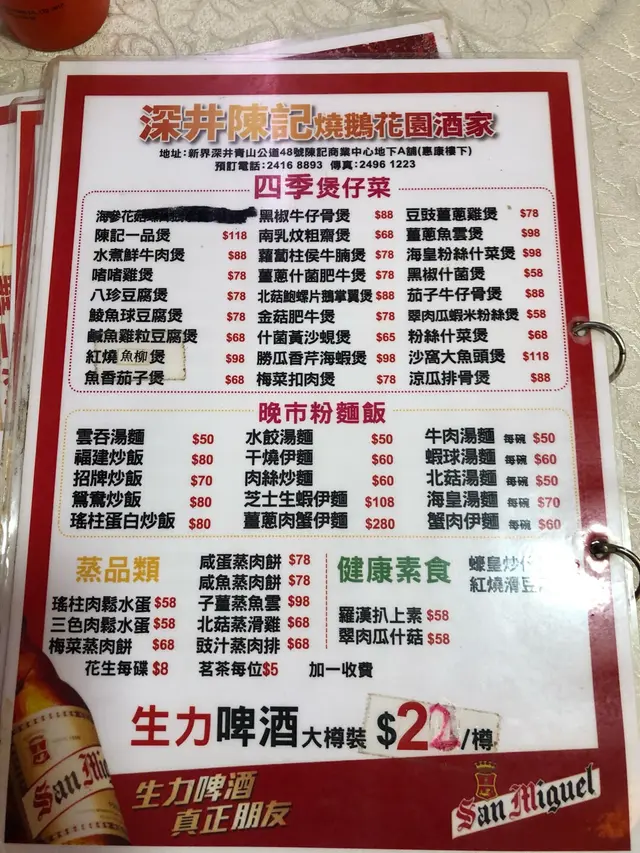 深井陳記燒鵝花園酒家
地址:新界深井青山公道48號陳記商業中心地下A舖(惠康樓下)
預訂電話:2416 8893 傳真:2496 1223
四季煲仔菜
海參花菇
陳記一品煲 $118
水煮鮮牛肉煲 $88
啫啫雞煲 $78
八珍豆腐煲 $78
鯪魚球豆腐煲 $78
鹹魚雞粒豆腐煲 $68
紅燒魚柳煲 $98
魚香茄子煲 $68
黑椒牛仔骨煲 $88
南乳炆粗齋煲 $68
蘿蔔柱侯牛腩煲 $78
薑蔥什菌肥牛煲 $78
北菇鮑螺片鵝掌翼煲 $88
金菇肥牛煲 $78
什菌黃沙蜆煲 $65
勝瓜香芹海蝦煲 $98
梅菜扣肉煲 $78
豆豉薑蔥雞煲 $78
薑蔥魚雲煲 $98
海皇粉絲什菜煲 $98
黑椒什菌煲 $58
茄子牛仔骨煲 $88
翠肉瓜蝦米粉絲煲 $58
粉絲什菜煲 $68
沙窩大魚頭煲 $118
涼瓜排骨煲 $88
晚市粉麵飯
雲吞湯麵 $50
福建炒飯 $80
招牌炒飯 $70
鴛鴦炒飯 $80
瑤柱蛋白炒飯 $80
水餃湯麵 $50
干燒伊麵 $60
肉絲炒麵 $60
芝士生蝦伊麵 $108
薑蔥肉蟹伊麵 $280
牛肉湯麵 每碗 $50
蝦球湯麵 每碗 $60
北菇湯麵 每碗 $50
海皇湯麵 每碗 $70
蟹肉伊麵 每碗 $60
蒸品類
瑤柱肉鬆水蛋 $58
三色肉鬆水蛋 $58
梅菜蒸肉餅 $68
咸蛋蒸肉餅 $78
咸魚蒸肉餅 $78
子薑蒸魚雲 $98
北菇蒸滑雞 $68
豉汁蒸肉排 $68
健康素食
羅漢扒上素 $58
翠肉瓜什菇 $58
蠔皇炒
紅燒滑豆
花生每碟 $8 茗茶每位 $5 加一收費
生力啤酒 大樽裝 $22/樽
生力啤酒
真正朋友
San Miguel
San Mig